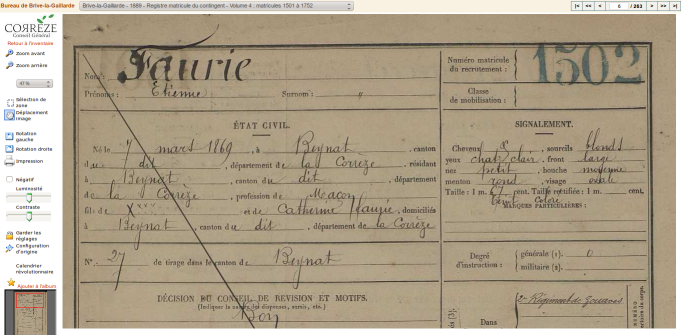 Bureau de Brive-la-Gaillarde
Brive-la-Gaillarde - 1889 - Registre matricule du contingent - Volume 4 : matricules 1501 à 1752
6 / 283
CORRÈZE
Conseil Général
Retour à l'inventaire
Zoom avant
Zoom arrière
47%
Sélection de zone
Déplacement image
Rotation gauche
Rotation droite
Impression
Négatif
Luminosité
Contraste
Garder les réglages
Configuration d'origine
Calendrier révolutionnaire
Ajouter à l'album
Nom : Faurie
Prénoms : Etienne Surnom : "
Numéro matricule du recrutement : 1502
Classe de mobilisation :
ÉTAT CIVIL.
Né le 7 mars 1869, à Beynat, canton
du dit, département de la Corrèze, résidant
à Beynat, canton du dit, département
de la Corrèze, profession de Maçon
fils de X et de Catherine, domiciliés
à Beynat, canton du dit, département de la Corrèze
N° 27 de tirage dans le canton de Beynat
DÉCISION DU CONSEIL DE REVISION ET MOTIFS.
(Indiquer la nature des dispenses, sursis, etc.)
Bon
SIGNALEMENT.
Cheveux et sourcils blonds
yeux chat. clair, front large
nez petit, bouche moyenne
menton rond, visage ovale
Taille : 1 m. 67 cent. Taille rectifiée : 1 m. cent.
Teint Coloré
MARQUES PARTICULIÈRES :
Degré d'instruction : générale (1). 0
militaire (2).
2e Régiment de Zouaves
Dans